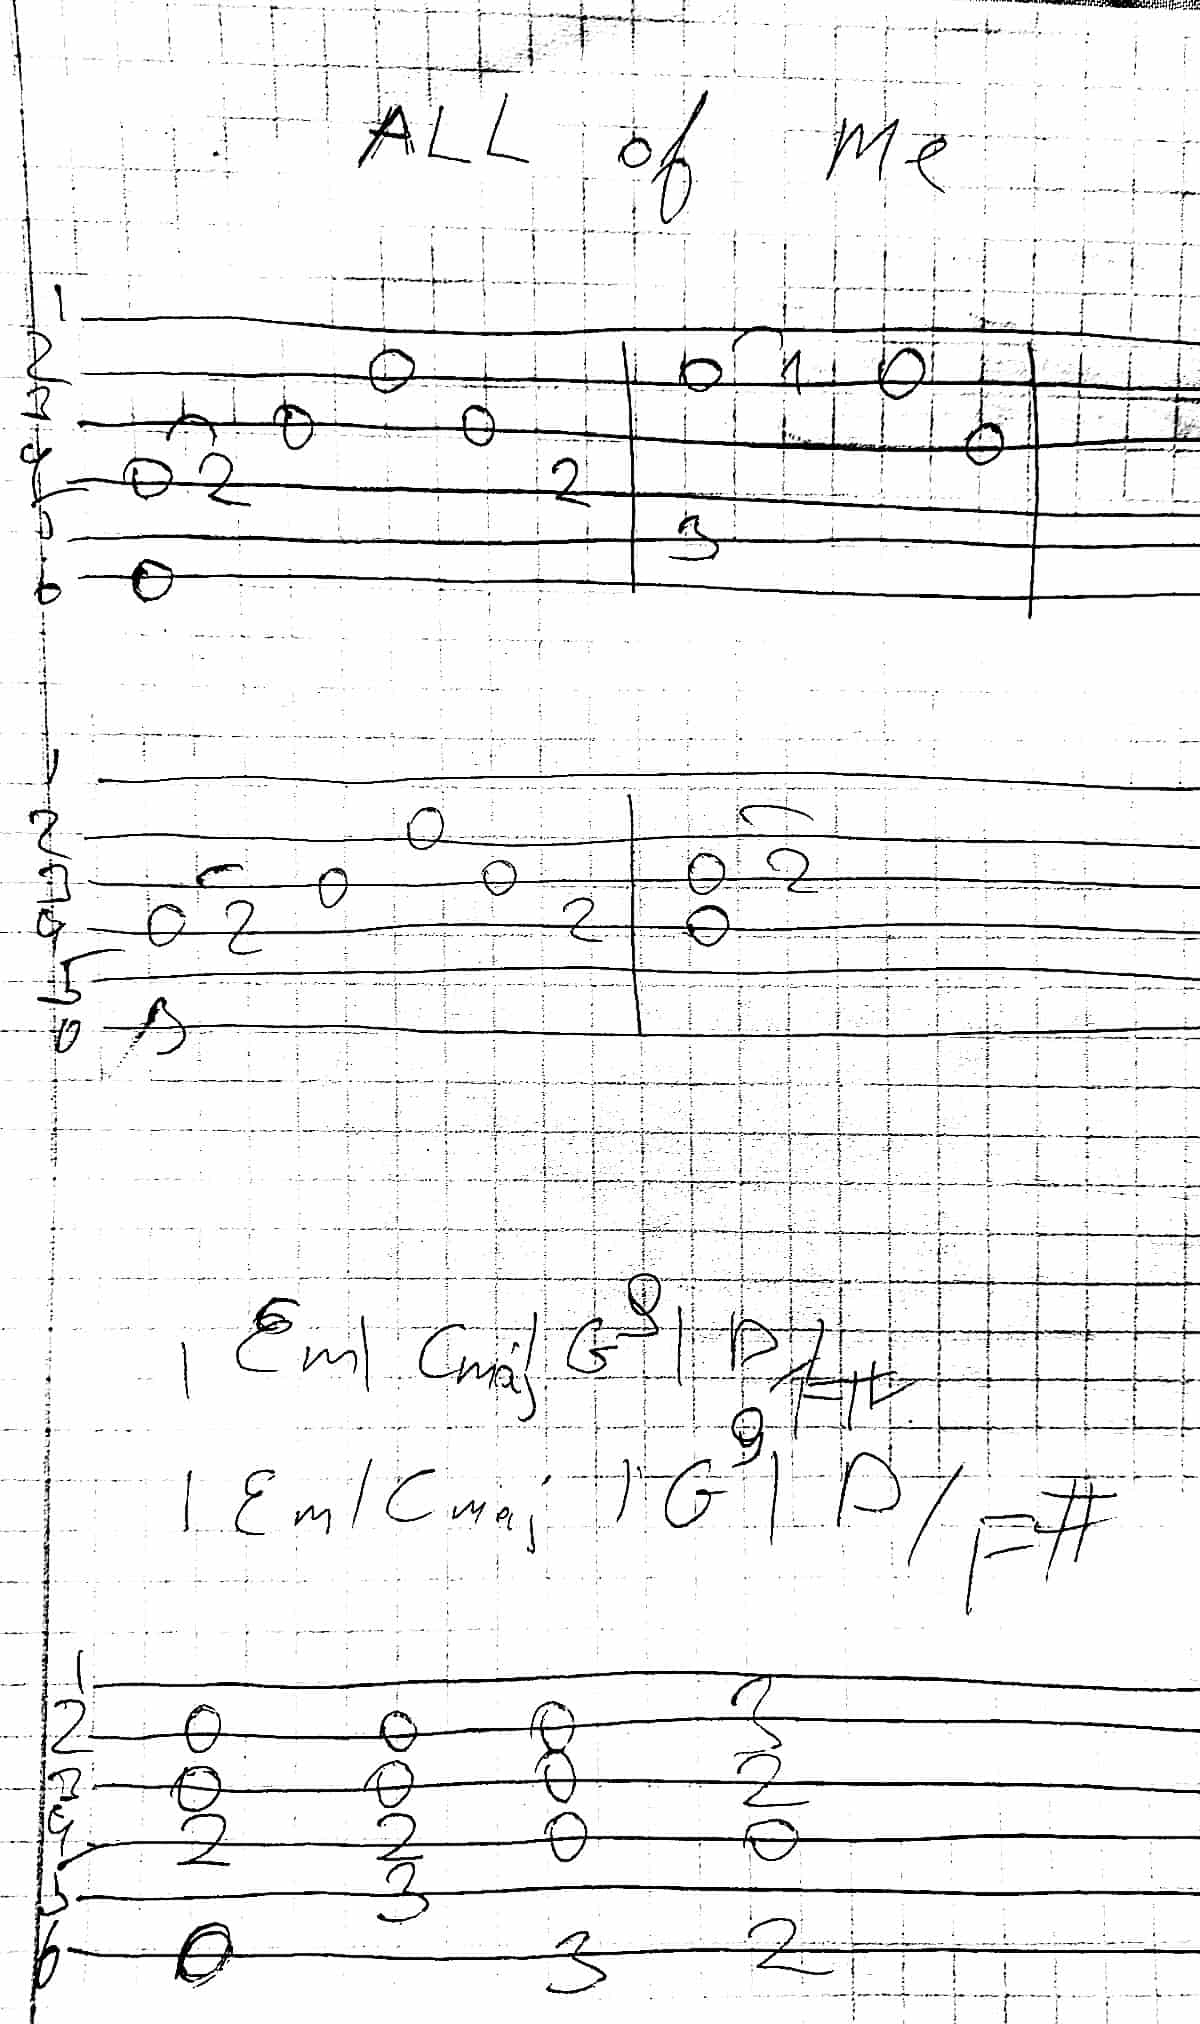 ALL of Me
1
2 0 0 1 0
3 0 0 0
4 0 2 2
5 3
6 0
1
2 0
3 0 0 0 2
4 0 2 2 0
5
6 3
| Em | Cmaj | G9 | D/F#
| Em | Cmaj | G9 | D/F#
1
2 0 0 0 3
3 0 0 0 2
4 2 2 0 0
5 3
6 0 3 2